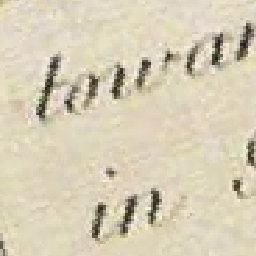 towar
in